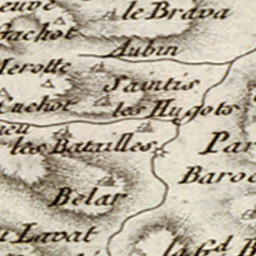 euve
le Brava
Gachot
Aubin
Merolle
Saintis
Cuchot
les Hugots
les Batailles
Par
Baroc
Belar
Lavat
la Gd. B